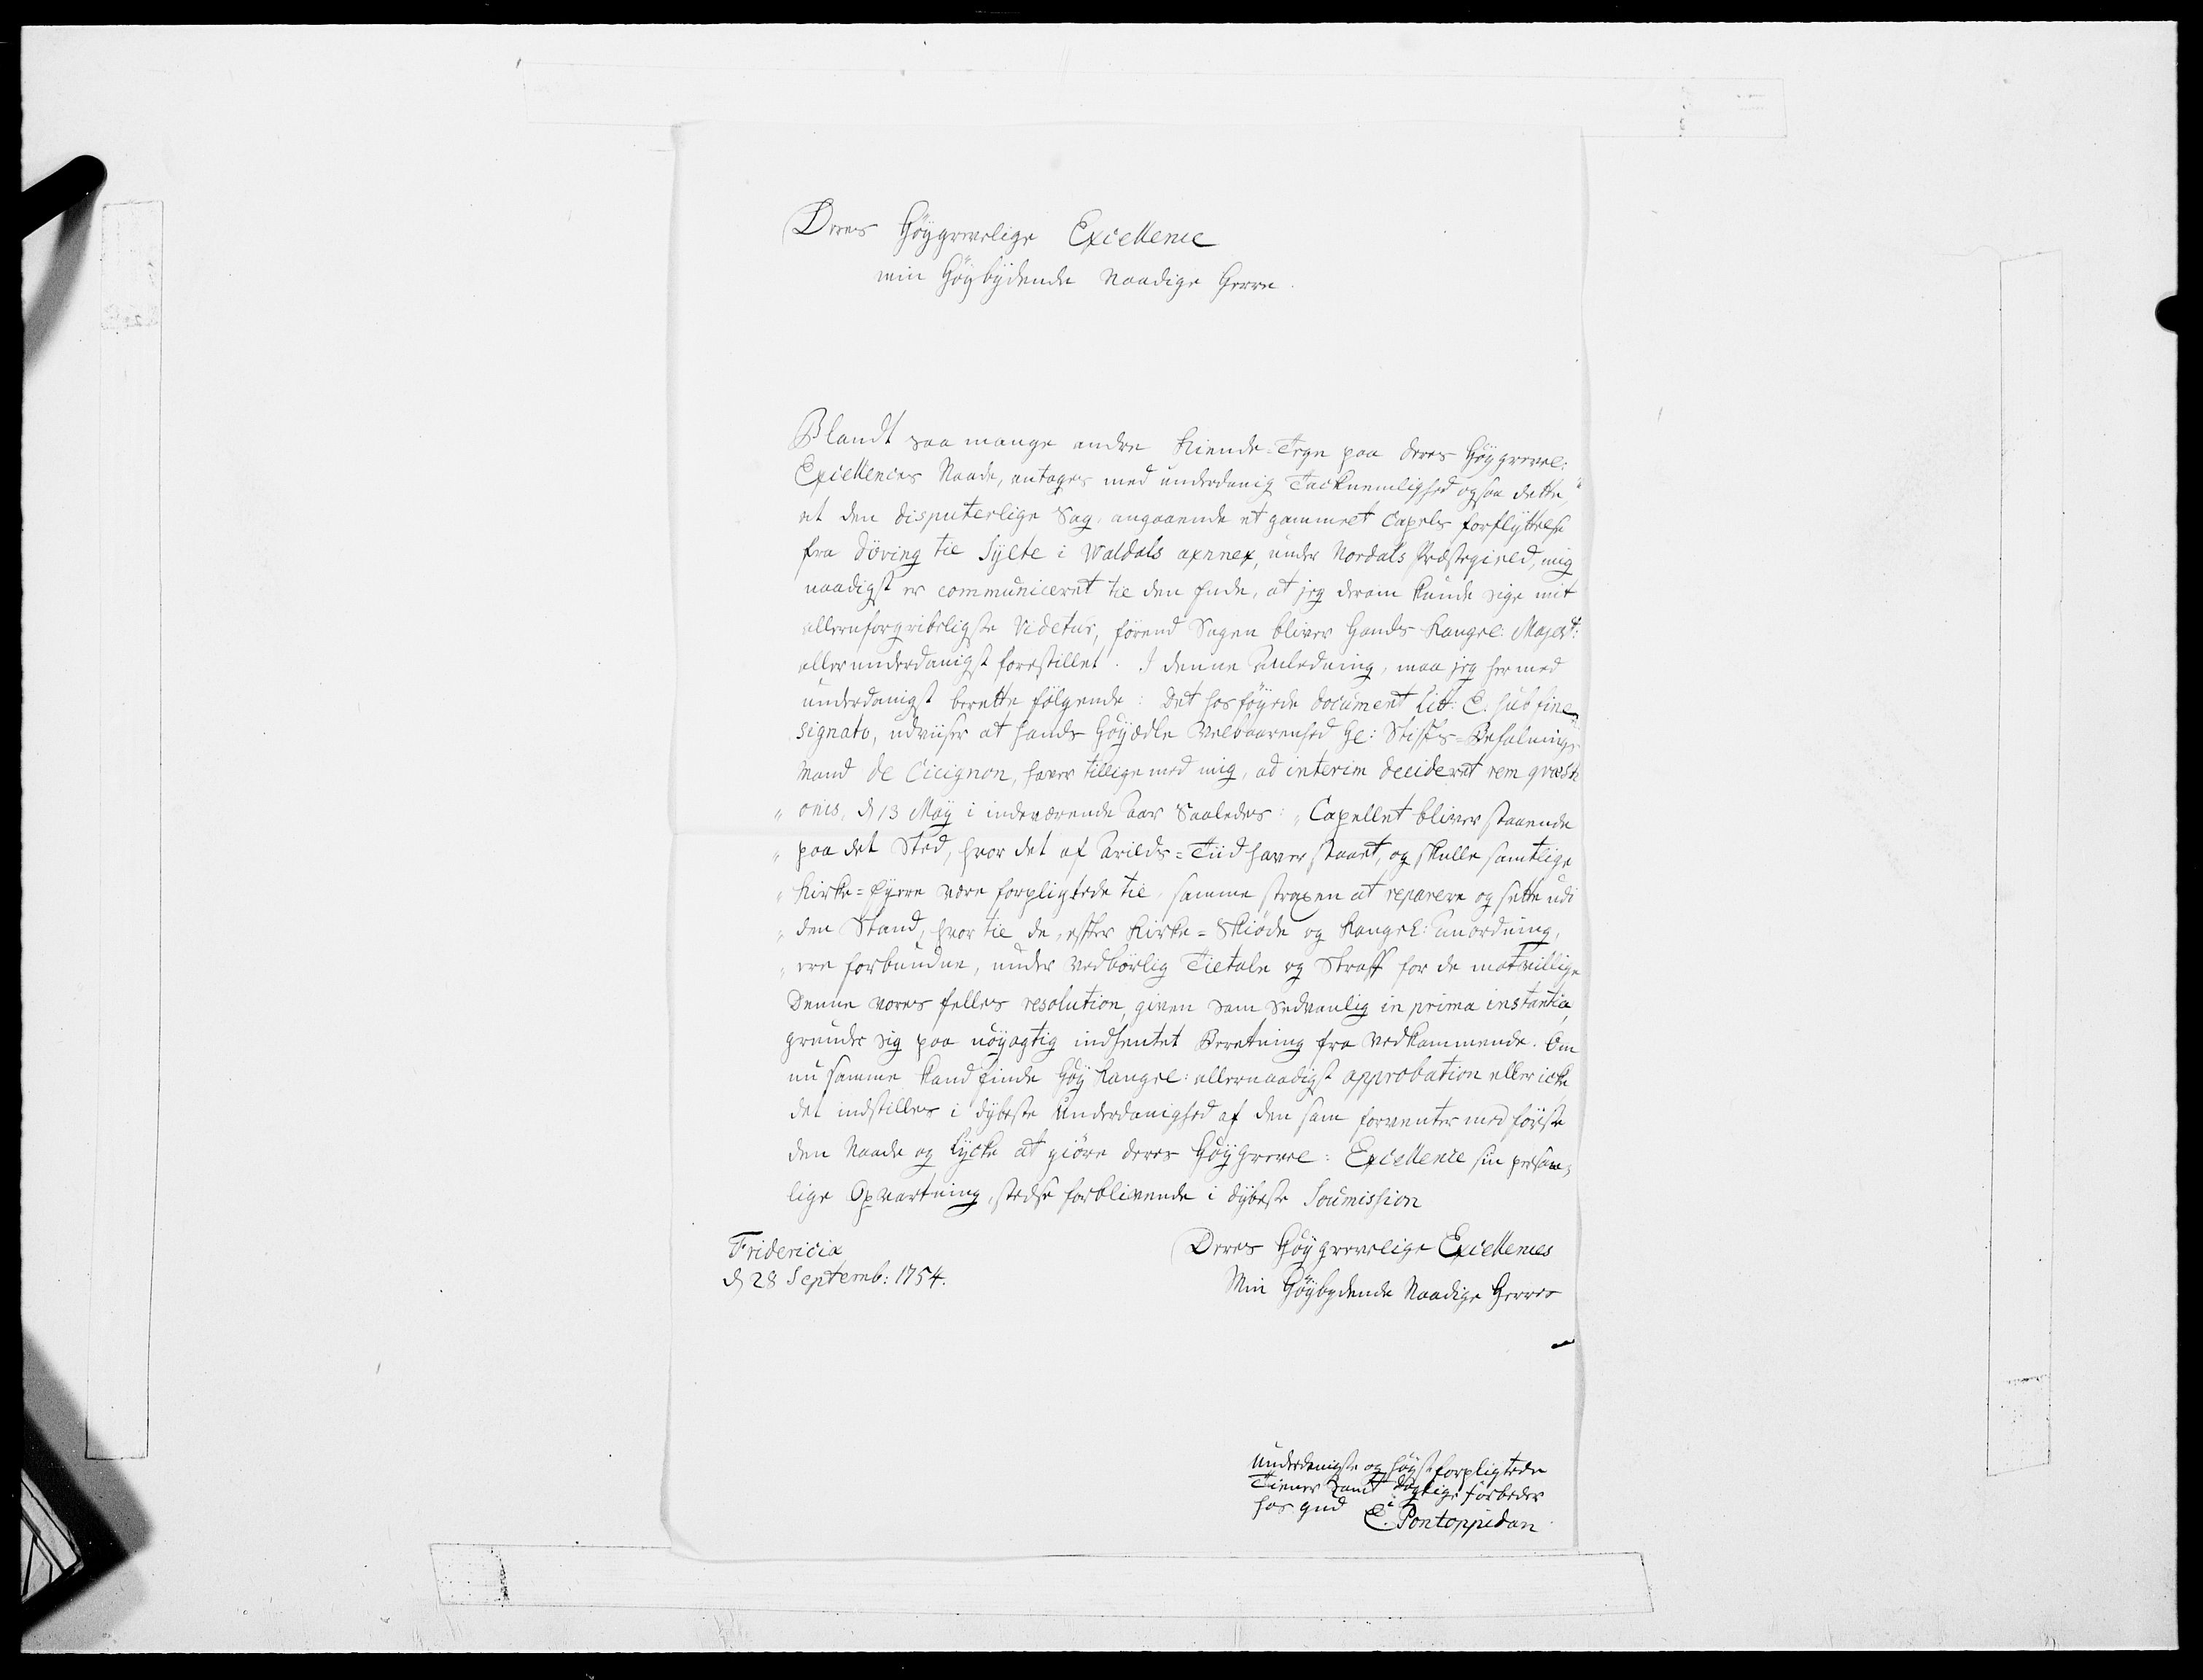 Deres Høygrevelige Excellence
min Høybÿdende Naadige Herre.
Blandt saa mange andre Kiende-Tegn paa Deres Høygrevel:
Excellences Naade, antages med underdanig Tacknemlighed ogsaa dette,
at den disputerlige Sag, angaaende et gammelt Capels forflÿttelse
fra Döving til Sÿlte i Waldals annex, under Nordals Præstegield, mig
naadigst er communiceret til den Ende, at jeg derom kunde sige mit
alleruforgribeligste Videtur, förend Sagen bliver Hands Kongel: Majest:
allerunderdanigst forestillet. I denne Anledning, maa jeg her med
underdanigst berette fölgende: Det hosföyede Document Litt: E. sub fine
signato, udviiser at hands Höyædle Velbaarenhed Hr: Stifts-Befalnings-
Mand de Cicignon, haver tillige med mig, ad interim decideret rem quæsti
" onis, d 13 Maÿ i indeværende Aar Saaledes: „Capellet bliver staaende
" paa det Sted, hvor det af Arilds=Tiid haver staaet, og skulle samtlige
" Kirke=Eÿere være forpligtede til, samme straxen at reparere og sette udi
" den Stand, hvor til de, efter Kirke=Skiöde og Kongel: Anordning,
" ere forbundne, under vedbörlig Tiltale og Straff for de modvillige
Denne vores felles resolution, given som sedvanlig in prima instantia,
grunder sig paa nöÿagtig indhentet Beretning fra Vedkommende. Om
nu samme kand finde Höÿ Kongel: allernaadigst approbation eller icke
det indstilles i dÿbeste Underdanighed af den som forventer med förste
den Naade og Lÿcke at giöre deres Höÿgrevel: Excellence sin person-
lige Opvartning, stedse forblivende i dÿbeste Soumission
Fridericia
d 28 Septemb: 1754.
Deres Höÿgrevelige Excellences
Min Höÿbydende Naadige Herres
underdanigste og höÿstforpligtede
Tiener samt dagtlige forbeder
hos Gud E. Pontoppidan